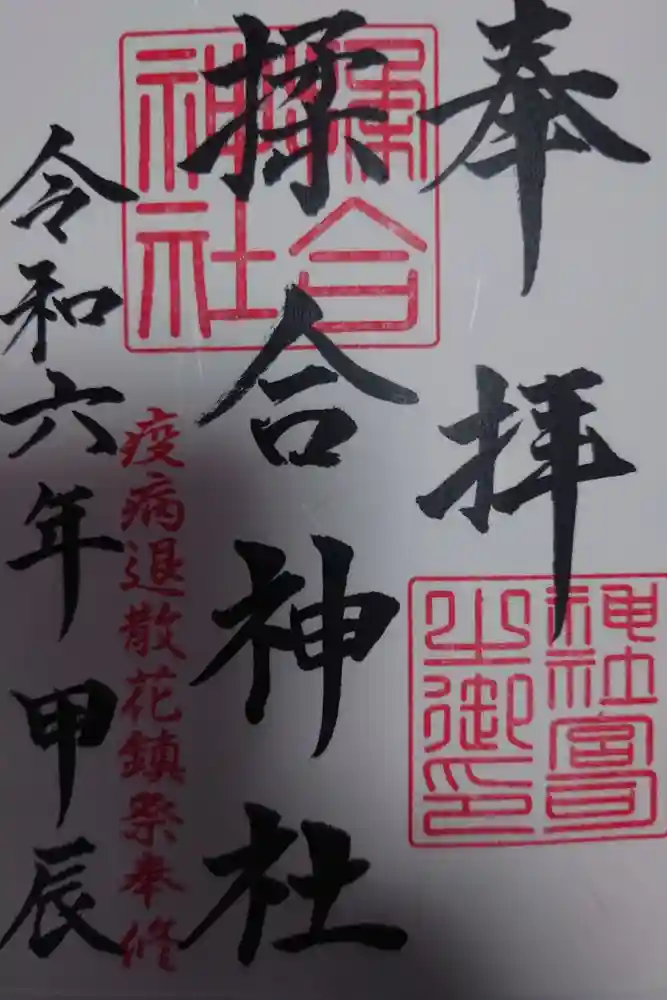 奉拝
神社
之御印
揉合神社
合
神社
疫病退散花鎮祭奉修
令和六年甲辰